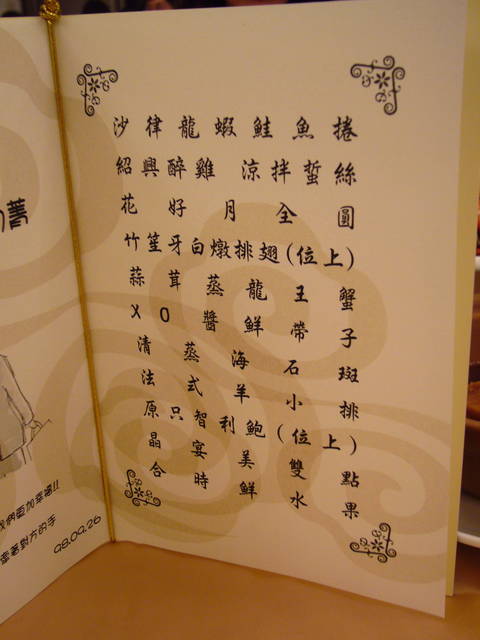 沙律龍蝦鮭魚捲
紹興醉雞 涼拌蜇絲
花好月全圓
竹笙牙白燉排翅(位上)
蒜茸蒸龍王蟹
XO醬鮮帶子
清蒸海石斑
法式羊小排
原只智利鮑(位上)
晶宴美雙點
合時鮮水果
菁
們更加幸福!!
著對方的手
98.09.26